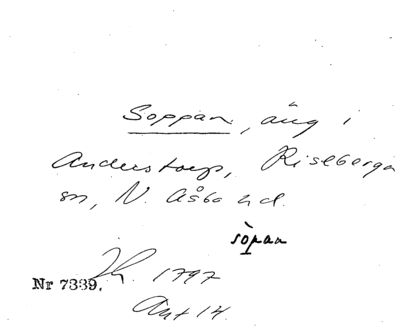 Soppan, äng i
Anderstorp, Riseberga
sn, N. Åsbo hd.
sòpan
Nr 7339. Jh. 1797
Akt 14.